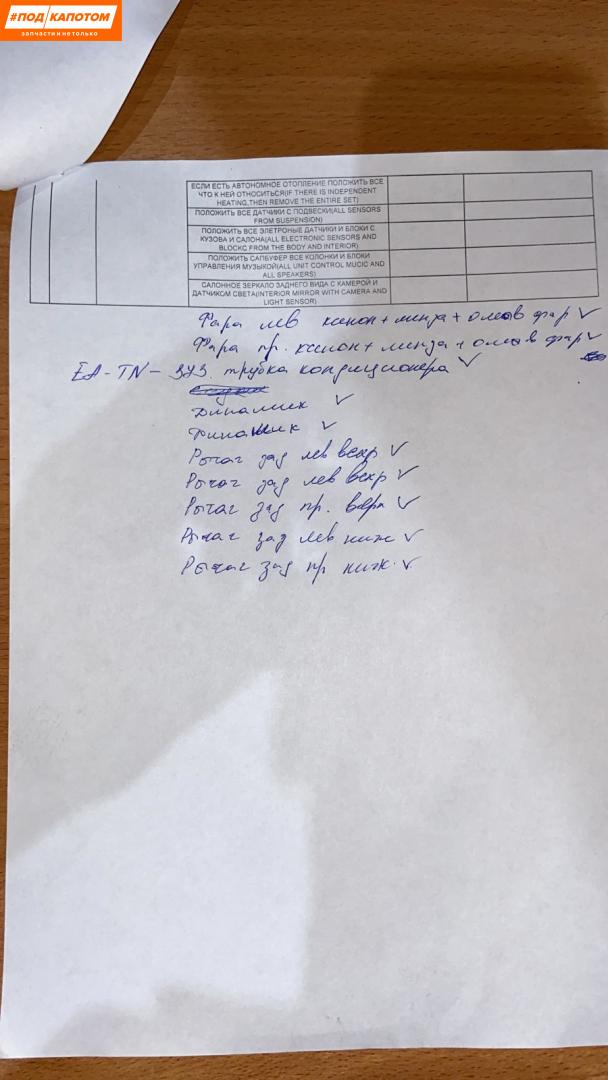 #ПОД КАПОТОМ
запчасти и не только
ЕСЛИ ЕСТЬ АВТОНОМНОЕ ОТОПЛЕНИЕ ПОЛОЖИТЬ ВСЕ
ЧТО К НЕЙ ОТНОСИТЬСЯ(IF THERE IS INDEPENDENT
HEATING,THEN REMOVE THE ENTIRE SET)
ПОЛОЖИТЬ ВСЕ ДАТЧИКИ С ПОДВЕСКИ(ALL SENSORS
FROM SUSPENSION)
ПОЛОЖИТЬ ВСЕ ЭЛЕТРОНЫЕ ДАТЧИКИ И БЛОКИ С
КУЗОВА И САЛОНА(ALL ELECTRONIC SENSORS AND
BLOCKC FROM THE BODY AND INTERIOR)
ПОЛОЖИТЬ САПБУФЕР ВСЕ КОЛОНКИ И БЛОКИ
УПРАВЛЕНИЯ МУЗЫКОЙ(ALL UNIT CONTROL MUCIC AND
ALL SPEAKERS)
САЛОННОЕ ЗЕРКАЛО ЗАДНЕГО ВИДА С КАМЕРОЙ И
ДАТЧИКОМ СВЕТА(INTERIOR MIRROR WITH CAMERA AND
LIGHT SENSOR)
Фара лев ксенон + линза + омыв фар ✓
Фара пр. ксенон + линза + омыв фар ✓
EA-TN- трубка кондиционера ✓
Динамик ✓
Динамик ✓
Рычаг зад лев верх ✓
Рычаг зад лев верх ✓
Рычаг зад пр. верх ✓
Рычаг зад лев ниж ✓
Рычаг зад пр ниж. ✓